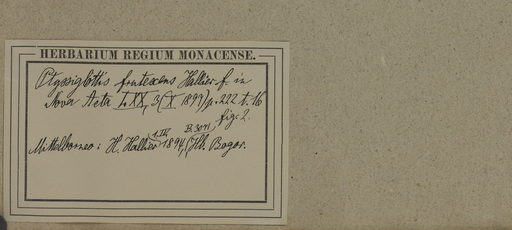 HERBARIUM REGIUM MONACENSE.
Ptyssiglottis frutescens Hallier f. in
Nova Acta LXX, 3 (X. 1897) p. 222 t. 16
fig. 2.
Mittelborneo: H. Hallier B. 3011, 1894, (Hb. Bogor.